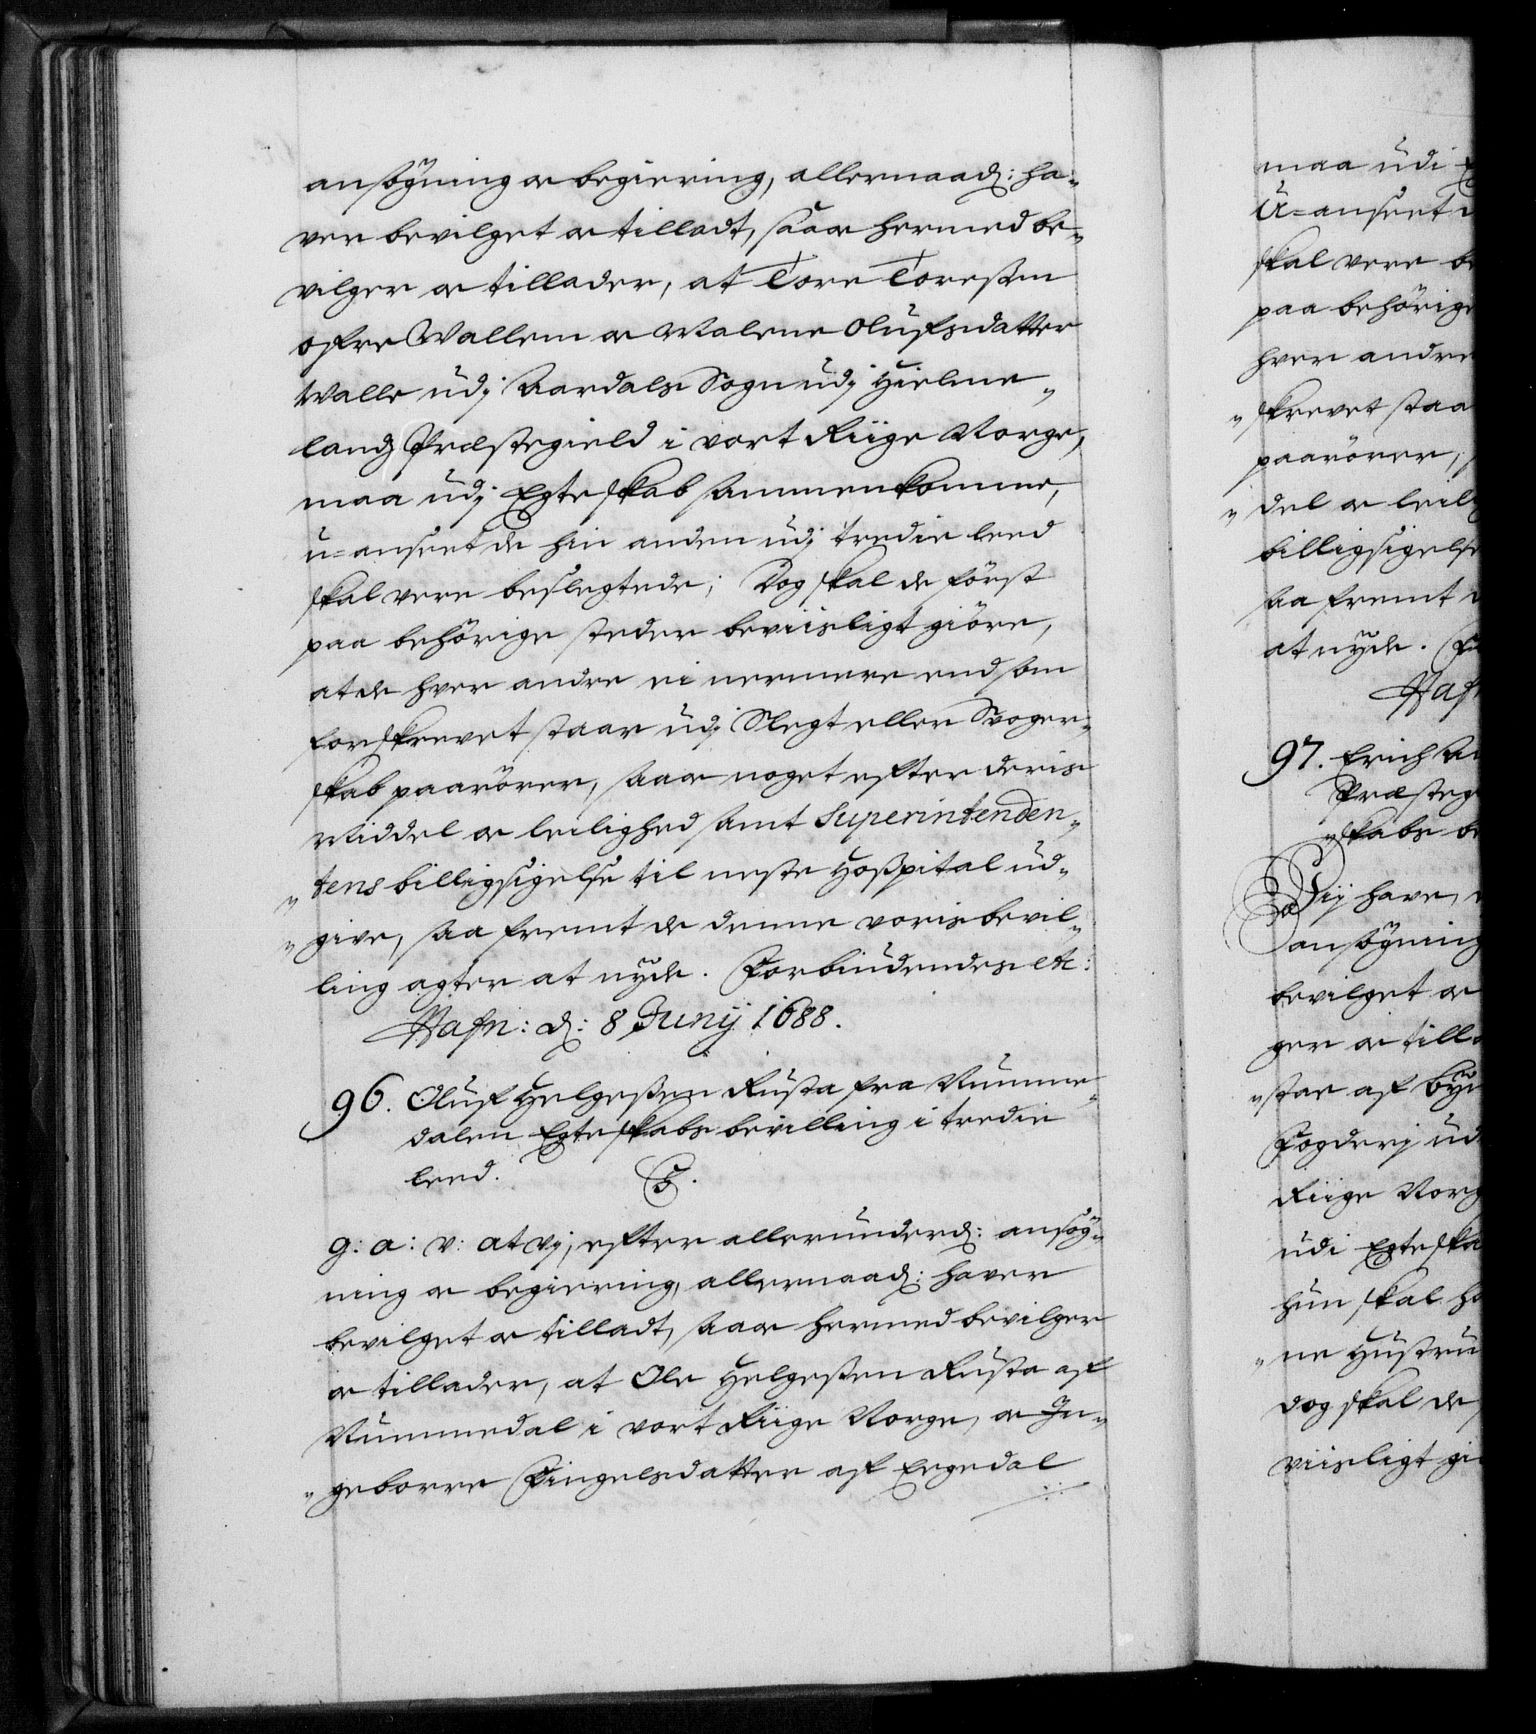 ansøgning oc begiering, allernaad: ha„
ver bevilget oc tilladt, saa oc hermed be„
vilger oc tillader, at Tore Toreßen
øfre Wallem oc Malene Olufsdatter
Walle udj Aardals Sogn udj Hielme„
landz Præstegield i vort Riige Norge,
maa udj Egteskab sammenkomme,
u=anseet de hin anden udj tredie leed
skal vere beslegtede; Dog skal de først
paa behörige steder beviisligt giöre,
at de hver andre ei nermere end som
forskrevet staar udj Slegt eller Svoger„
skab paarörer, saa oc noget efter deris
Middel oc leilighed samt Superintenden„
„tens billigsigelse til neste Hoßpital ud„
„give, saa fremt de denne voris bevil„
ling agter at nyde. Forbiudendes etc:
Hafn: d: 8 Junij 1688.
96. Oluf Helgeßen Rusta fra Numme„
dalen Egteskabs bevilling i tredie
leed.
C5.
g: a: v: at vj, efter allerunderd: ansøg„
ning oc begiering, allernaad: haver
bevilget oc tilladt, saa oc hermed bevilger
oc tillader, at Ole Helgeßen Rusta af
Nummedal i vort Riige Norge, oc In„
„geborre Fingelsdatter af Egedal
maa udi E
U=anseet
skal vere be
paa behörige
hver andre
„skrevet staa
paarörer,
„del oc leil
billigsigelse
saa fremt
at nyde. Fo
Hafn
97. Erich
Præsteg
„skabs be
Vij have,
ansøgning
bevilget oc
ger oc tilla
„star af
Fogderj ud
Riige Norg
udi Egteska
hun skal ha
„ne Hustru
dog skal de
viisligt gi